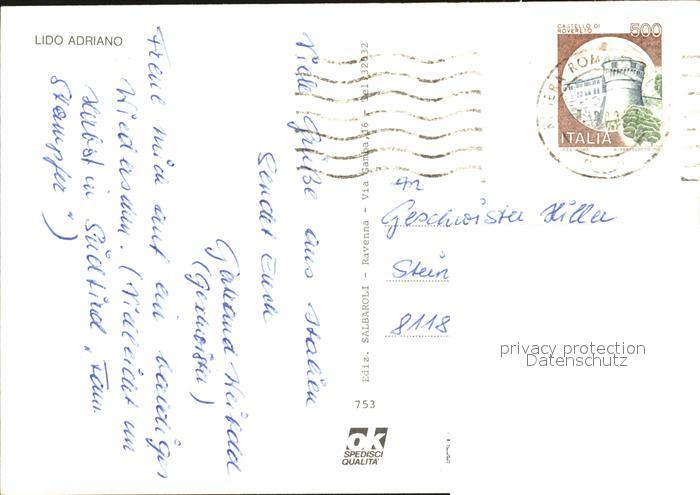 LIDO ADRIANO
Viele Grüße aus Italien
sendet Euch
(Geschwister)
Freue mich auf ein baldiges
Wiedersehen. (Vielleicht im
Herbst in Südtirol, "Fam.
Stampfer")
Ediz. SALBAROLI - Ravenna - Via Gamba, 16 - Tel. 32032
753
ok
SPEDISCI
QUALITA'
CASTELLO DI
ROVERETO
500
ITALIA
An
Geschwister Hiller
Stein
8118
privacy protection
Datenschutz